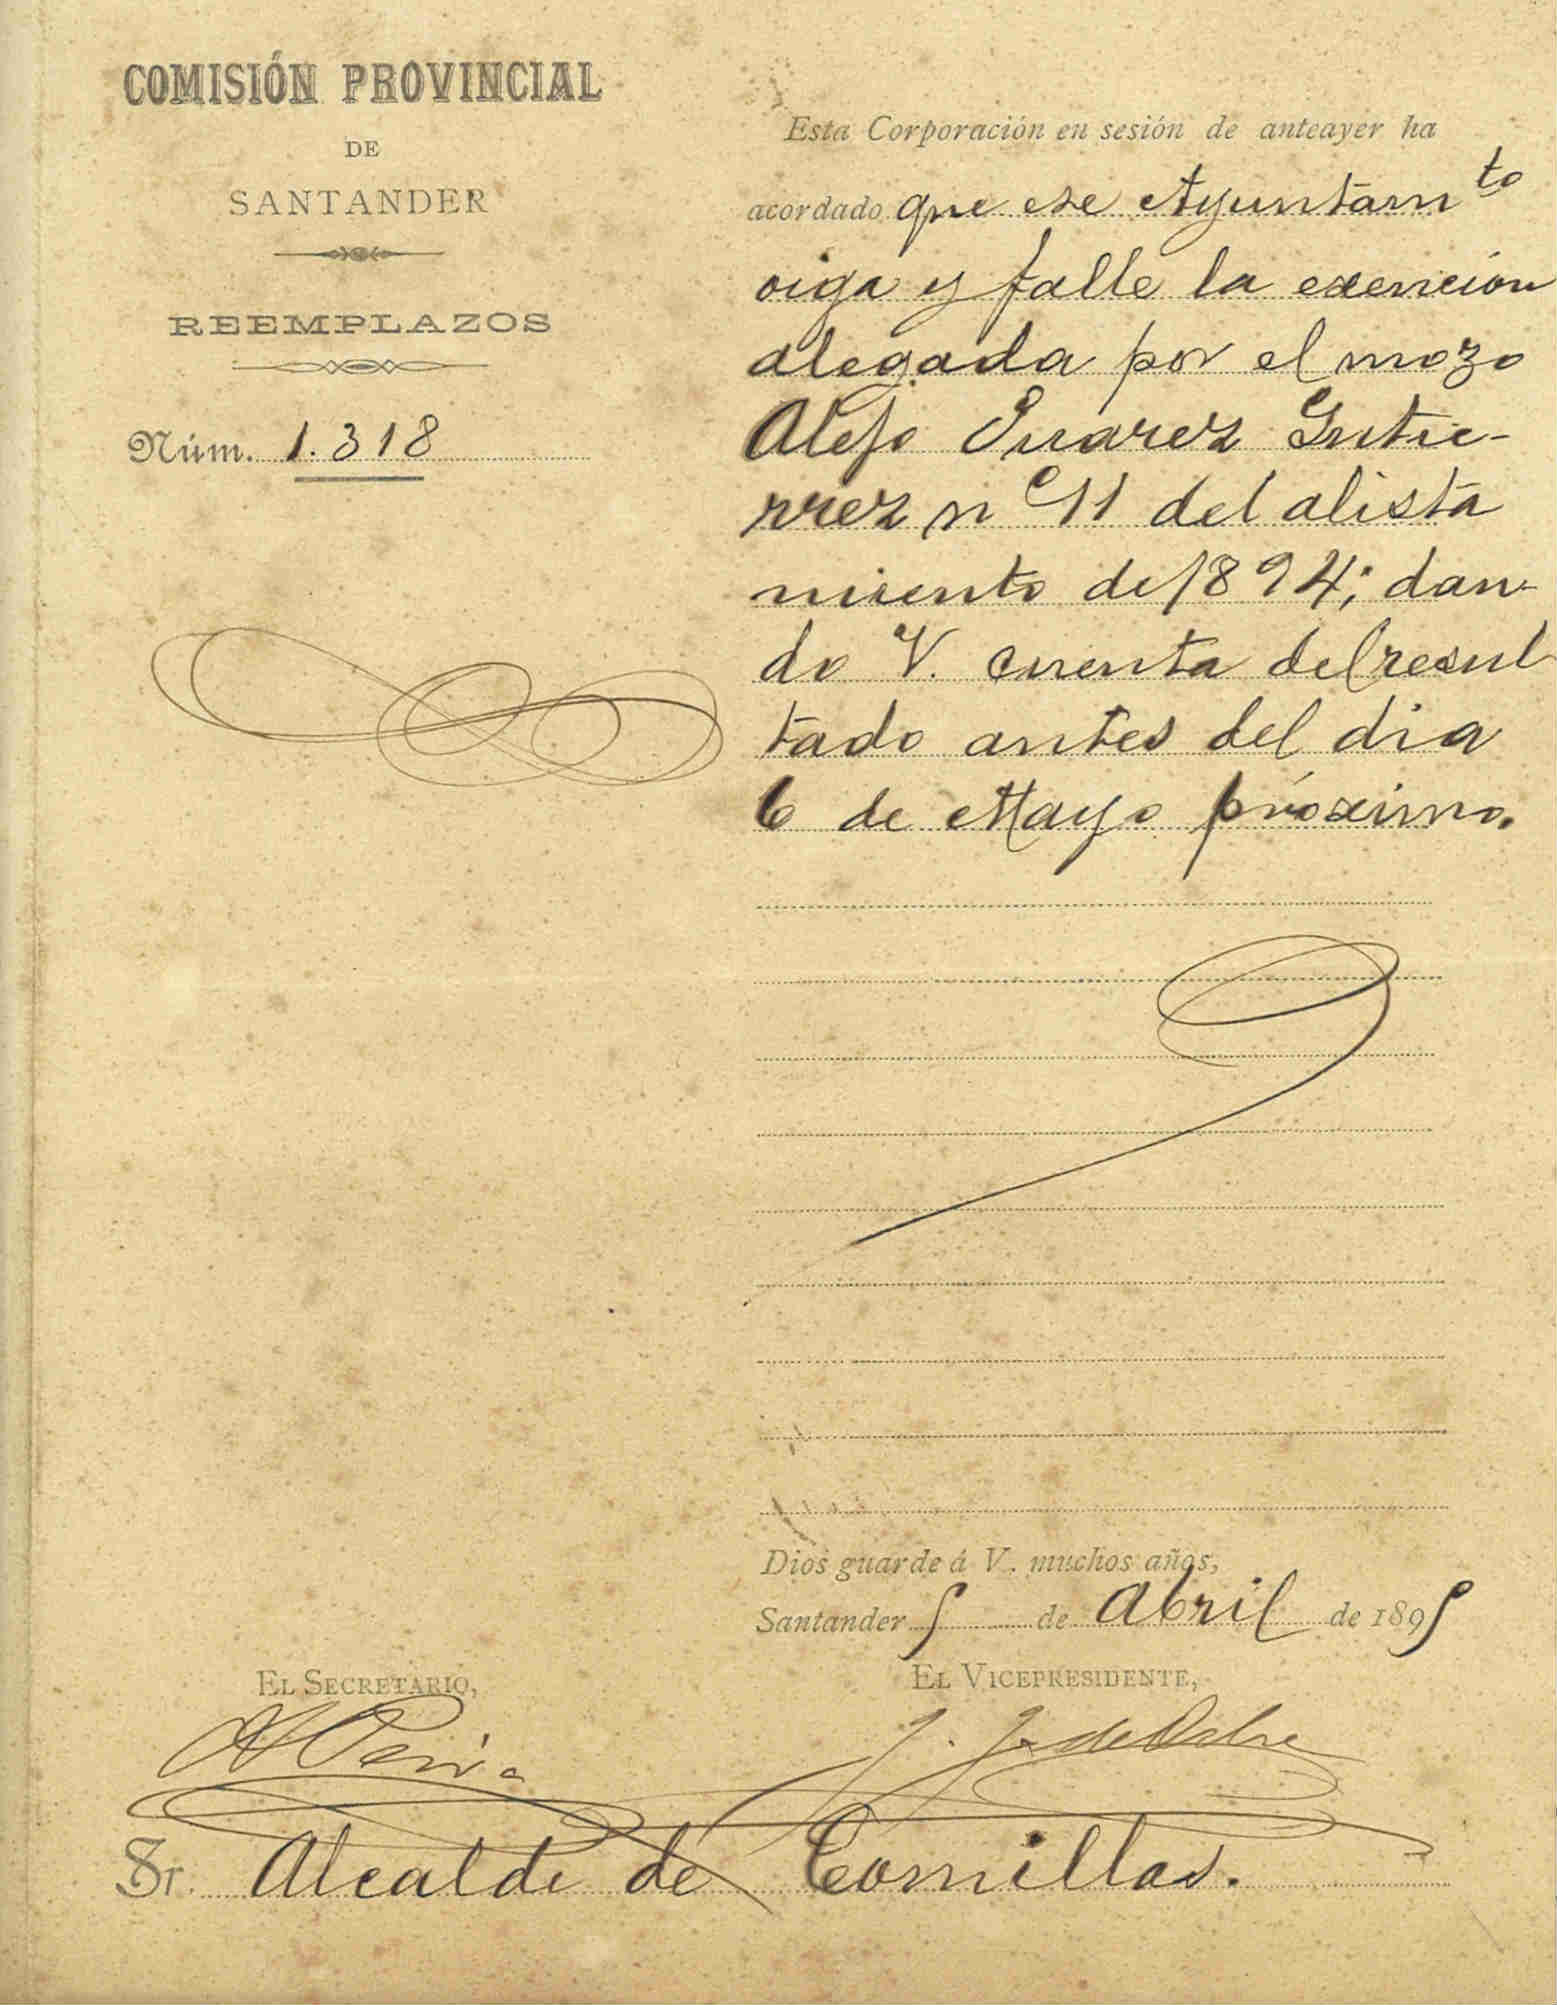 COMISIÓN PROVINCIAL
DE
SANTANDER
REEMPLAZOS
Núm. 1.318
Esta Corporación en sesión de anteayer ha
acordado que ese Ayuntamto
oiga y falle la exención
alegada por el mozo
Alejo Suarez Gutie-
rrez n.º 11 del alista
miento de 1894; dan-
do V. cuenta del resul
tado antes del dia
6 de Mayo próximo.
Dios guarde á V. muchos años,
Santander 5 de Abril de 1895
EL SECRETARIO,
EL VICEPRESIDENTE,
Sr. Alcalde de Comillas.